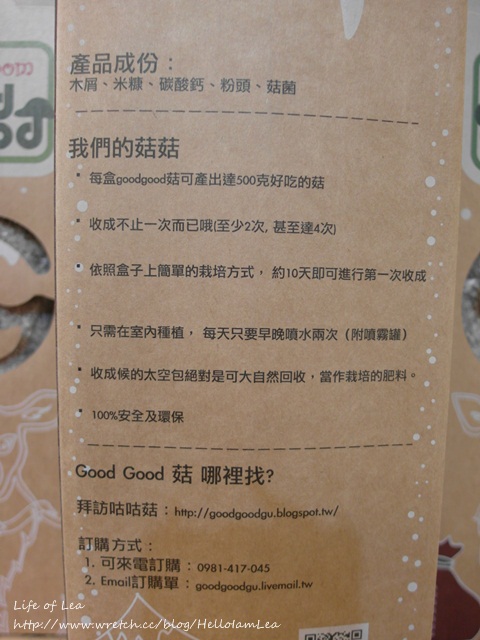 產品成份：
木屑、米糠、碳酸鈣、粉頭、菇菌
我們的菇菇
* 每盒goodgood菇可產出達500克好吃的菇
* 收成不止一次而已哦(至少2次, 甚至達4次)
* 依照盒子上簡單的栽培方式， 約10天即可進行第一次收成
* 只需在室內種植， 每天只要早晚噴水兩次（附噴霧罐）
* 收成候的太空包絕對是可大自然回收，當作栽培的肥料。
* 100%安全及環保
Good Good 菇 哪裡找?
拜訪咕咕菇：http://goodgoodgu.blogspot.tw/
訂購方式：
1. 可來電訂購：0981-417-045
2. Email訂購單：goodgoodgu.livemail.tw
Life of Lea
http://www.wretch.cc/blog/HelloIamLea